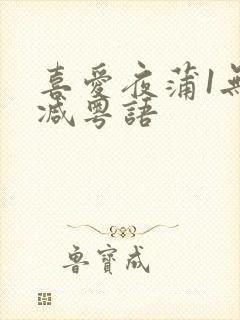 喜愛夜蒲1無
減粵語
魯寶成